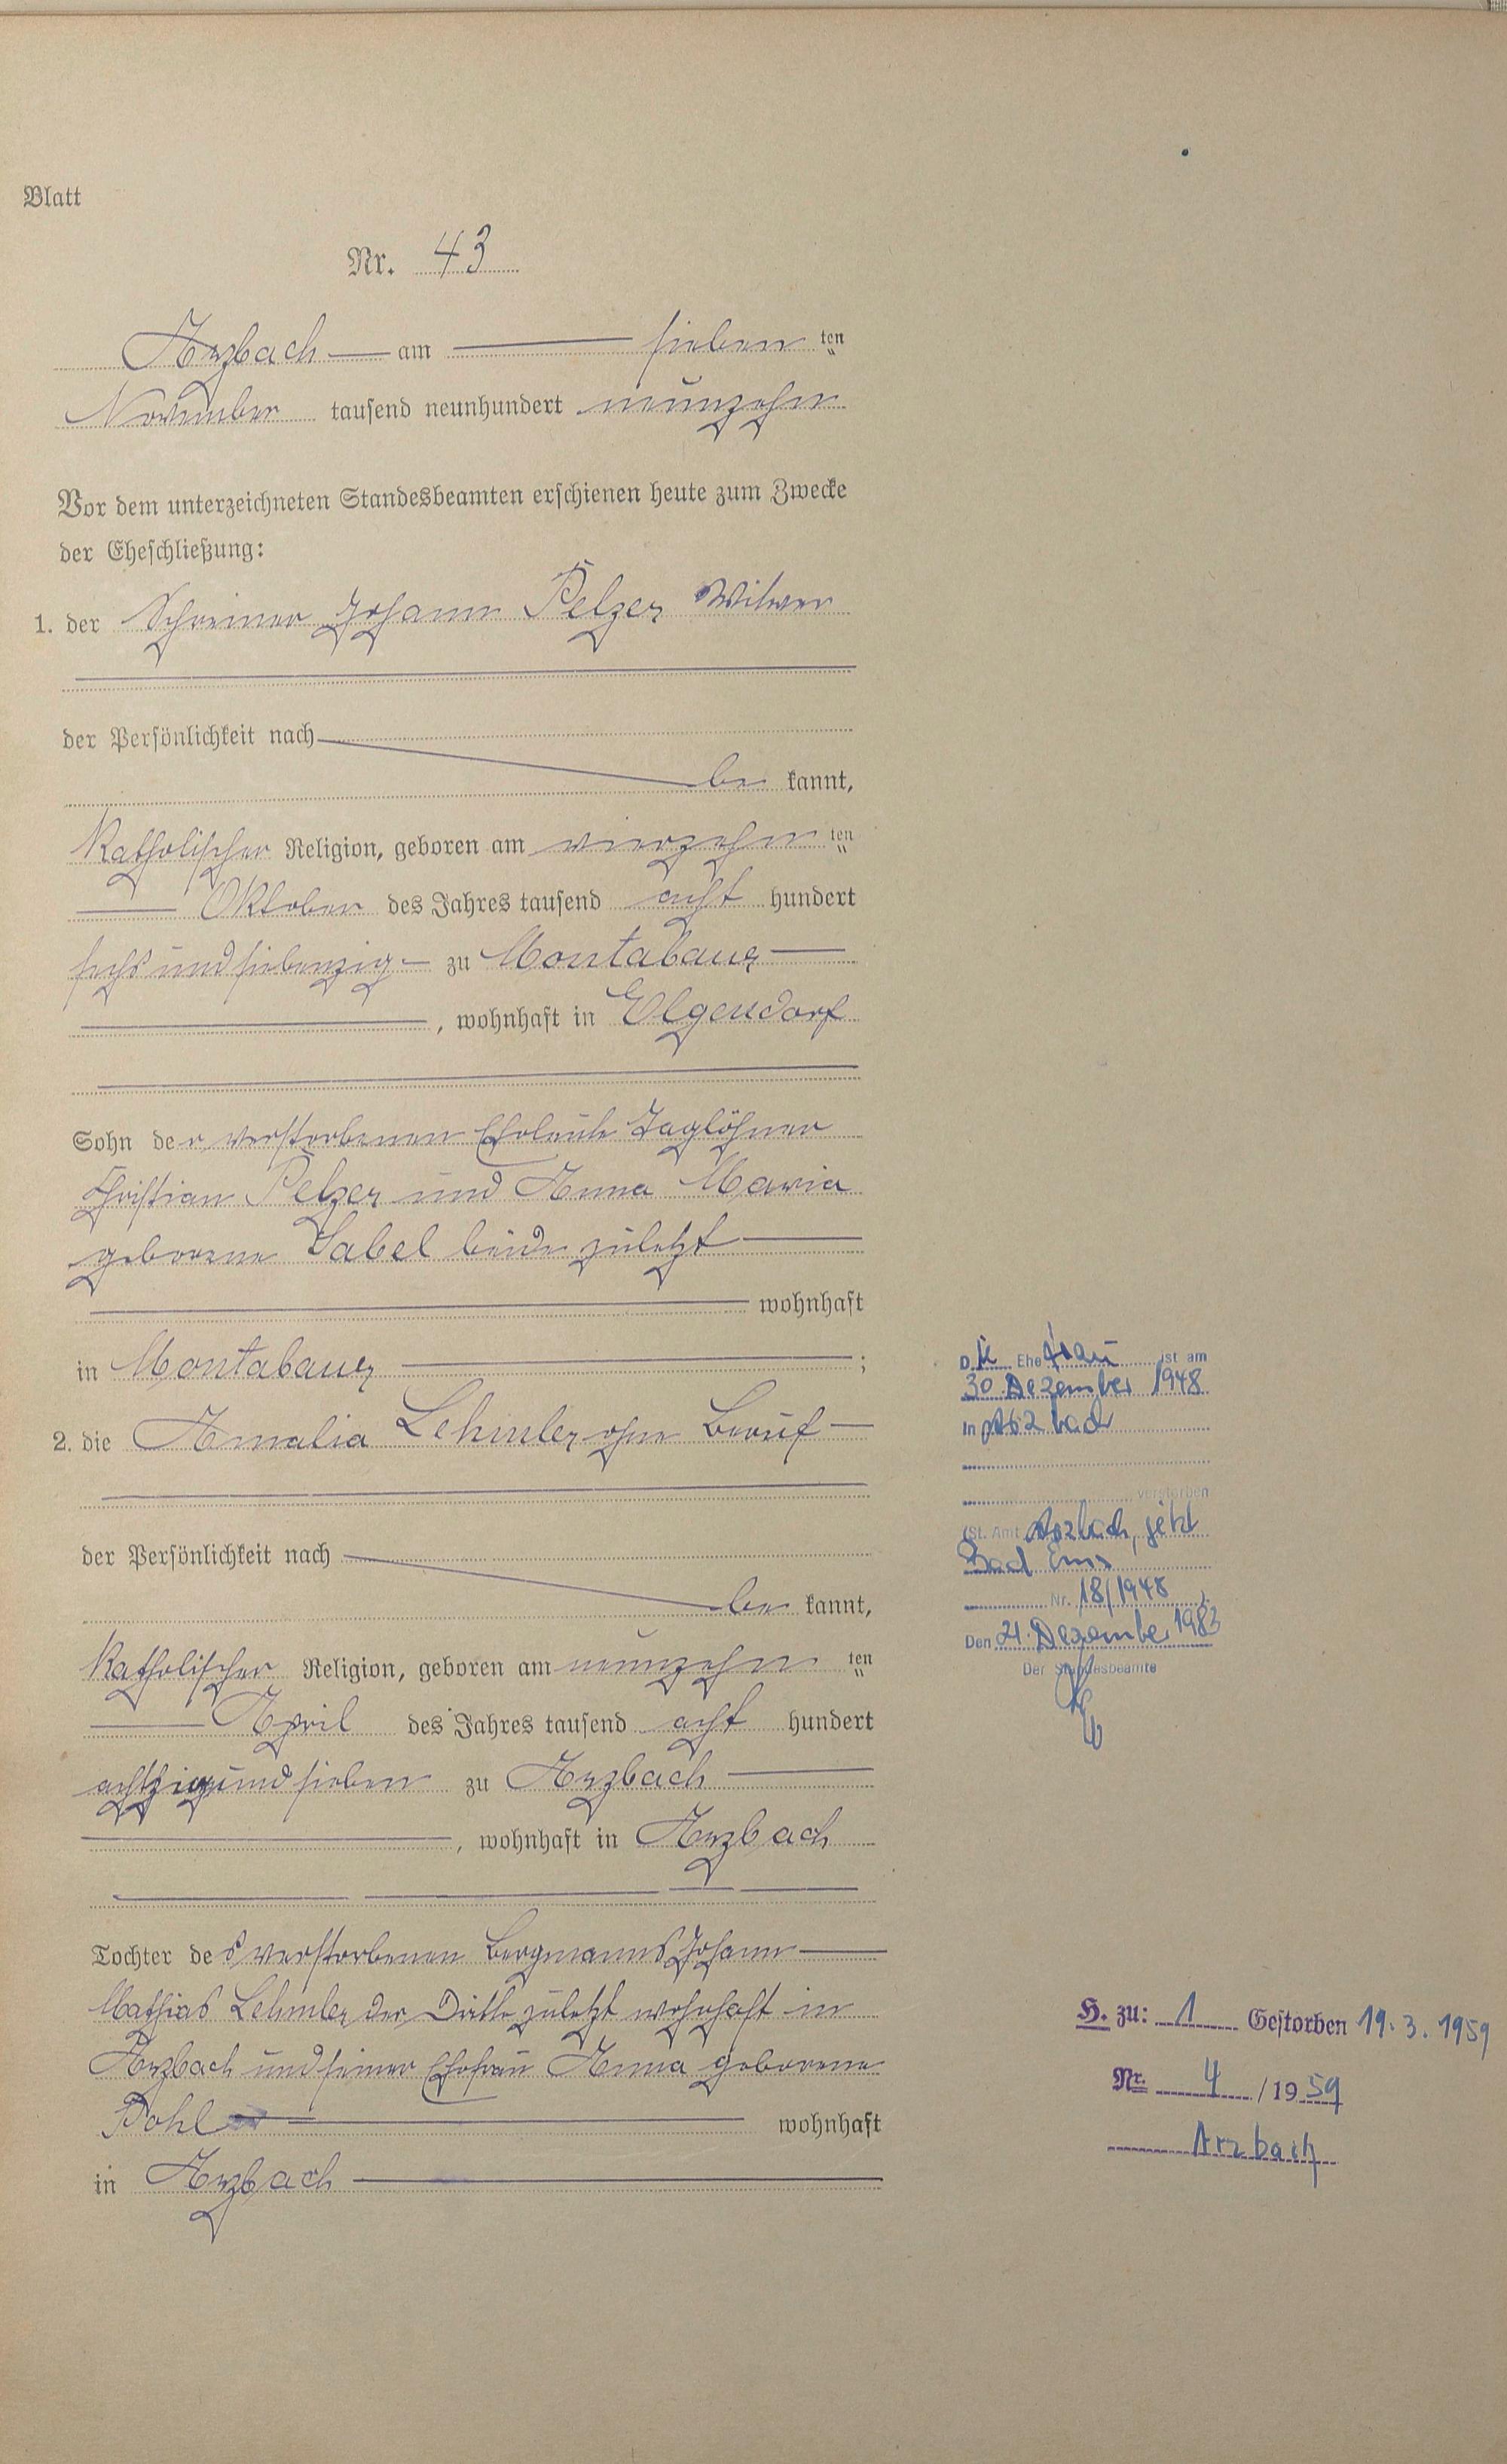 Blatt
Nr. 43
Arzbach am sieben ten
November tausend neunhundert neunzehn
Vor dem unterzeichneten Standesbeamten erschienen heute zum Zwecke
der Eheschließung:
1. der Schreiner Johann Pelzer Witwer
der Persönlichkeit nach
be kannt,
Katholischer Religion, geboren am vierzehn ten
Oktober des Jahres tausend acht hundert
sechs und siebenzig zu Montabaur
, wohnhaft in Elgendorf
Sohn der verstorbenen Eheleute Taglöhner
Christian Pelzer und Anna Maria
geborene Sabel beide zuletzt
wohnhaft
in Montabaur ;
2. die Amalia Lehmler ohne Beruf
der Persönlichkeit nach
be kannt,
Katholischer Religion, geboren am neunzehn ten
April des Jahres tausend acht hundert
achtzig und sieben zu Arzbach
, wohnhaft in Arzbach
Tochter des verstorbenen Bergmanns Johann
Mathias Lehmler der Dritte zuletzt wohnhaft in
Arzbach und seiner Ehefrau Anna geborene
Bohl wohnhaft
in Arzbach
Die Ehefrau ist am
30. Dezember 1948
in Arzbach
verstorben
(St. Amt Arzbach, jetzt
Bad Ems
Nr. 18/1948 ).
Den 21. Dezember 1983
Der Standesbeamte
H. zu: 1 Gestorben 19.3.1959
Nr. 4 /1959
Arzbach